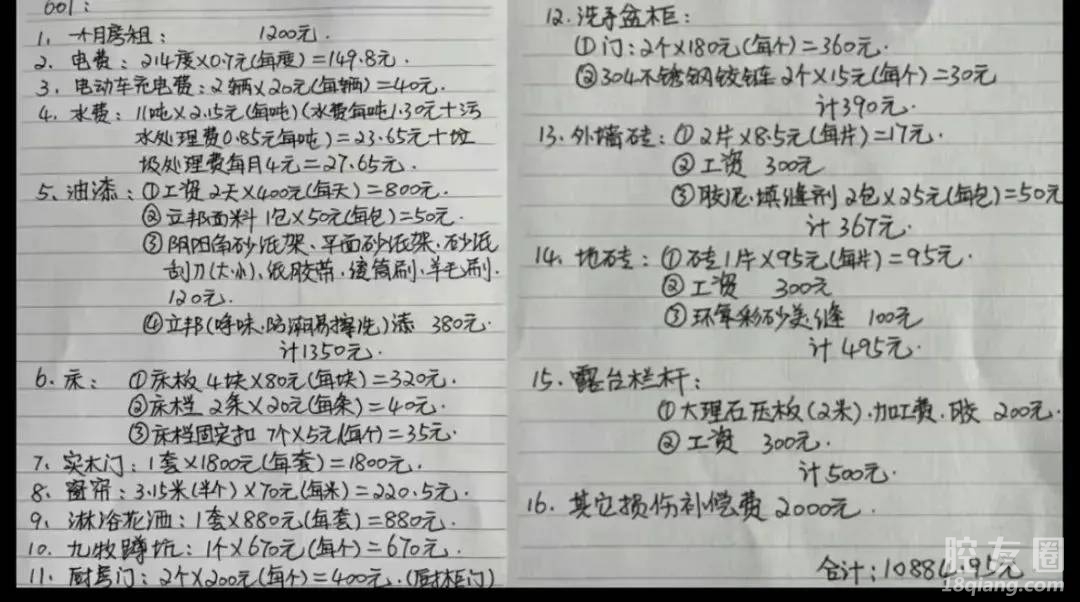 601:
1. 一个月房租: 1200元.
2. 电费: 214度×0.7元(每度)=149.8元.
3. 电动车充电费: 2辆×20元(每辆)=40元.
4. 水费: 11吨×2.15元(每吨)(水费每吨1.30元+污
水处理费0.85元每吨)=23.65元+垃
圾处理费每月4元=27.65元.
5. 油漆: ①工资 2天×400元(每天)=800元.
②立邦面料 1包×50元(每包)=50元.
③阴阳角砂纸架、平面砂纸架、砂纸
刮刀(大小)、纸胶带、滚筒刷、羊毛刷.
120元.
④立邦(净味、防潮易擦洗)漆 380元.
计1350元.
6. 床: ①床板 4块×80元(每块)=320元.
②床栏 2条×20元(每条)=40元.
③床栏固定扣 7个×5元(每个)=35元.
7. 实木门: 1套×1800元(每套)=1800元.
8. 窗帘: 3.15米(半个)×70元(每米)=220.5元.
9. 淋浴花洒: 1套×880元(每套)=880元.
10. 九牧蹲坑: 1个×670元(每个)=670元.
11. 厨房门: 2个×200元(每个)=400元.(厨柜门)
12. 洗手盆柜:
①门: 2个×180元(每个)=360元.
②304不锈钢铰链 2个×15元(每个)=30元
计390元.
13. 外墙砖: ①2片×8.5元(每片)=17元.
②工资 300元
③胶泥、填缝剂 2包×25元(每包)=50元
计367元.
14. 地砖: ①砖1片×95元(每片)=95元.
②工资 300元
③环氧彩砂美缝 100元
计495元.
15. 露台栏杆:
①大理石压板(2米).加工费、胶 200元.
②工资 300元.
计500元.
16. 其它损伤补偿费 2000元.
合计: 10884.95元
腔友圈
18qiang.com